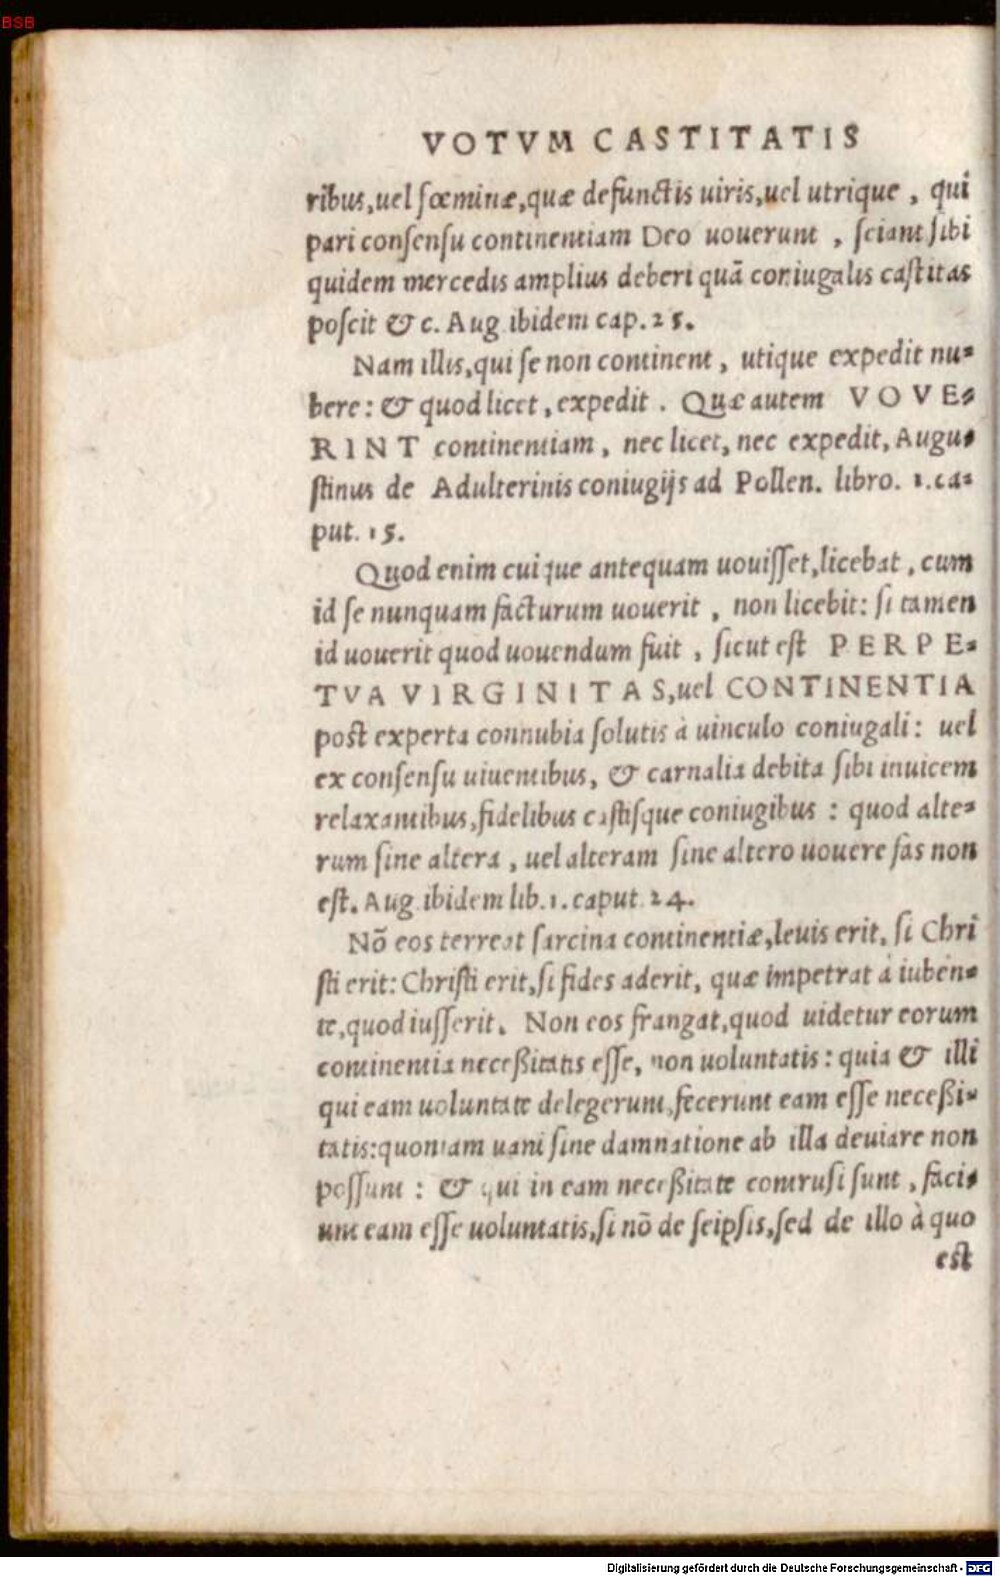 BSB
VOTVM CASTITATIS
ribus, uel fœminæ, quæ defunctis uiris, uel utrique, qui
pari consensu continentiam Deo uouerunt, sciant sibi
quidem mercedis amplius deberi quã coniugalis castitas
poscit & c. Aug ibidem cap. 25.
Nam illis, qui se non continent, utique expedit nu-
bere: & quod licet, expedit. Quæ autem VOVE-
RINT continentiam, nec licet, nec expedit, Augu-
stinus de Adulterinis coniugijs ad Pollen. libro. 1. ca-
put. 15.
Quod enim cuique antequam uouisset, licebat, cum
id se nunquam facturum uouerit, non licebit: si tamen
id uouerit quod uouendum fuit, sicut est PERPE-
TVA VIRGINITAS, uel CONTINENTIA
post experta connubia solutis à uinculo coniugali: uel
ex consensu uiuentibus, & carnalia debita sibi inuicem
relaxantibus, fidelibus castisque coniugibus: quod alte-
rum sine altera, uel alteram sine altero uouere fas non
est. Aug. ibidem lib. 1. caput 24.
Nõ eos terreat sarcina continentiæ, leuis erit, si Chri
sti erit: Christi erit, si fides aderit, quæ impetrat à iuben-
te, quod iusserit. Non eos frangat, quod uidetur eorum
continentia neceßitatis esse, non uoluntatis: quia & illi
qui eam uoluntate delegerunt, fecerunt eam esse neceßi-
tatis: quoniam uani sine damnatione ab illa deuiare non
possunt: & qui in eam neceßitate contrusi sunt, faci-
unt eam esse uoluntatis, si nõ de seipsis, sed de illo à quo
est
Digitalisierung gefördert durch die Deutsche Forschungsgemeinschaft - DFG